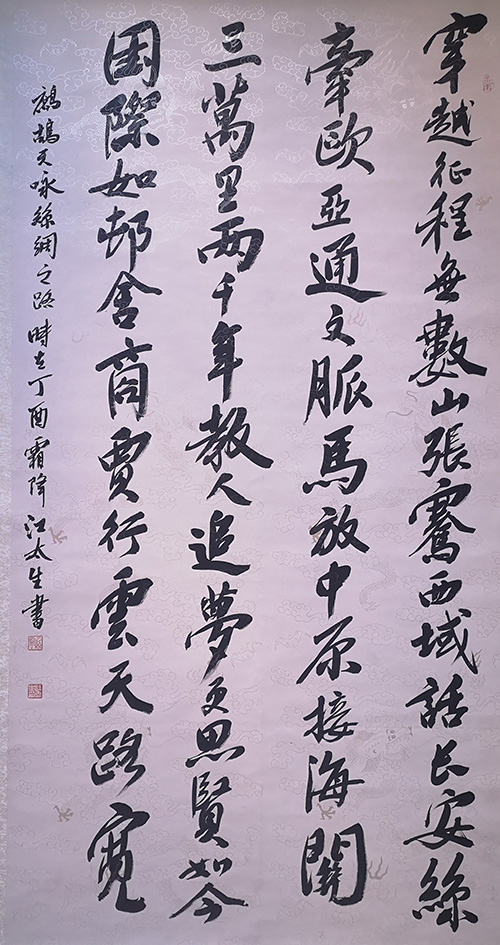 穿越征程無數山張騫西域話长安絲
牽歐亞通文脈馬放中原接海關
三萬里兩千年教人追夢更思賢如今
国際如邨舍商賈行雲天路寬
鷓鴣天咏絲綢之路時在丁酉霜降江太生書